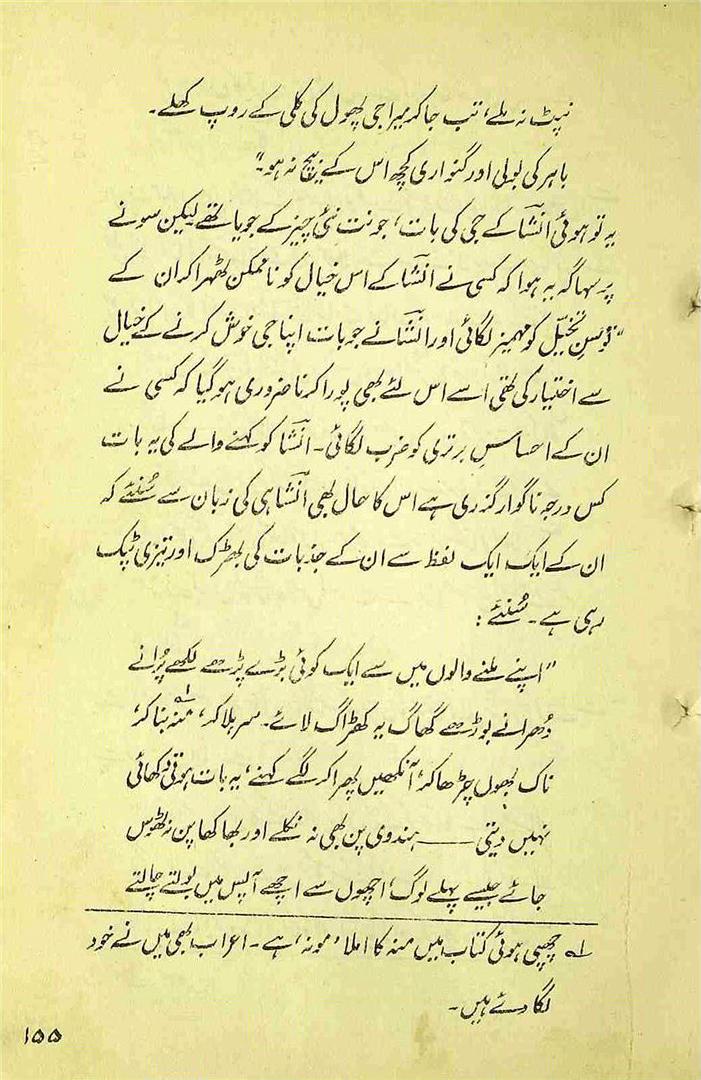 نپٹ نہ ملے، تب جا کر میرا جی پھول کی کلی کے روپ کھلے۔
باہر کی بولی اور گنواری کچھ اس کے بیچ نہ ہو۔"
یہ تو ہوئی انشاؔ کے جی کی بات، جو نت نئی چیز کے جویا تھے لیکن سونے
پر سہاگہ یہ ہوا کہ کسی نے انشاؔ کے اس خیال کو ناممکن ٹھہرا کر ان کے
"توسنِ تخیّل کو مہمیز لگائی اور انشاؔ نے جو بات اپنا جی خوش کرنے کے خیال
سے اختیار کی تھی اسے اس لئے بھی پورا کرنا ضروری ہو گیا کہ کسی نے
ان کے احساسِ برتری کو ضرب لگائی۔ انشاؔ کو کہنے والے کی یہ بات
کس درجہ ناگوار گذری ہے اس کا حال بھی انشاؔ ہی کی زبان سے سُنئے کہ
ان کے ایک ایک لفظ سے ان کے جذبات کی بھڑک اور تیزی ٹپک
رہی ہے۔ سُنئے :
"اپنے ملنے والوں میں سے ایک کوئی بڑے پڑھے لکھے پُرانے
دُھرانے بوڑھے گھاگ یہ کھڑاگ لائے۔ سر ہلا کر، منہ بنا کر،
ناک بھوں چڑھا کر، آنکھیں پھرا کر لگے کہنے، یہ بات ہوتی دکھائی
نہیں دیتی ـــــ ہندوی پن بھی نہ نکلے اور بھاکھا پن نہ ٹھوس
جائے جیسے پہلے لوگ، اچھوں سے اچھے آپس میں بولتے چالتے
لہ چھپی ہوئی کتاب میں منہ کا املا 'مونہ' ہے۔ اعراب بھی میں نے خود
لگا دئے ہیں۔
۱۵۵